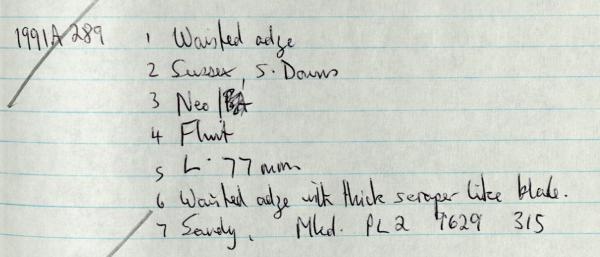 1991A 289 1 Waisted adze
2 Sussex, S. Downs
3 Neo/BA
4 Flint
5 L. 77 mm
6 Waisted adze with thick scraper like blade.
7 Sandy, Mkd. PL2 9629 315